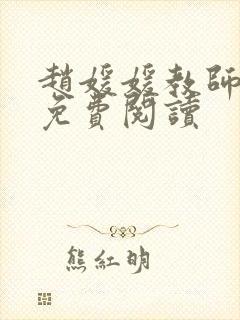 趙媛媛教師
免費閱讀
熊紅明